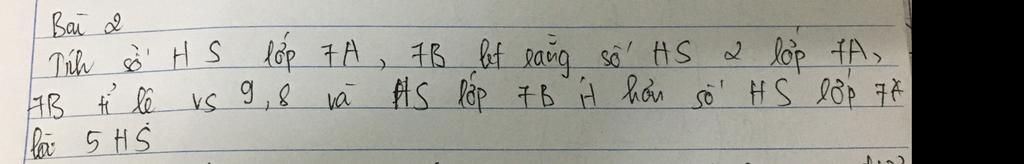 Bài 2
Tính số HS lớp 7A, 7B bt rằng số HS 2 lớp 7A,
7B tỉ lệ vs 9,8 và HS lớp 7B ít hơn số HS lớp 7A
là 5 HS